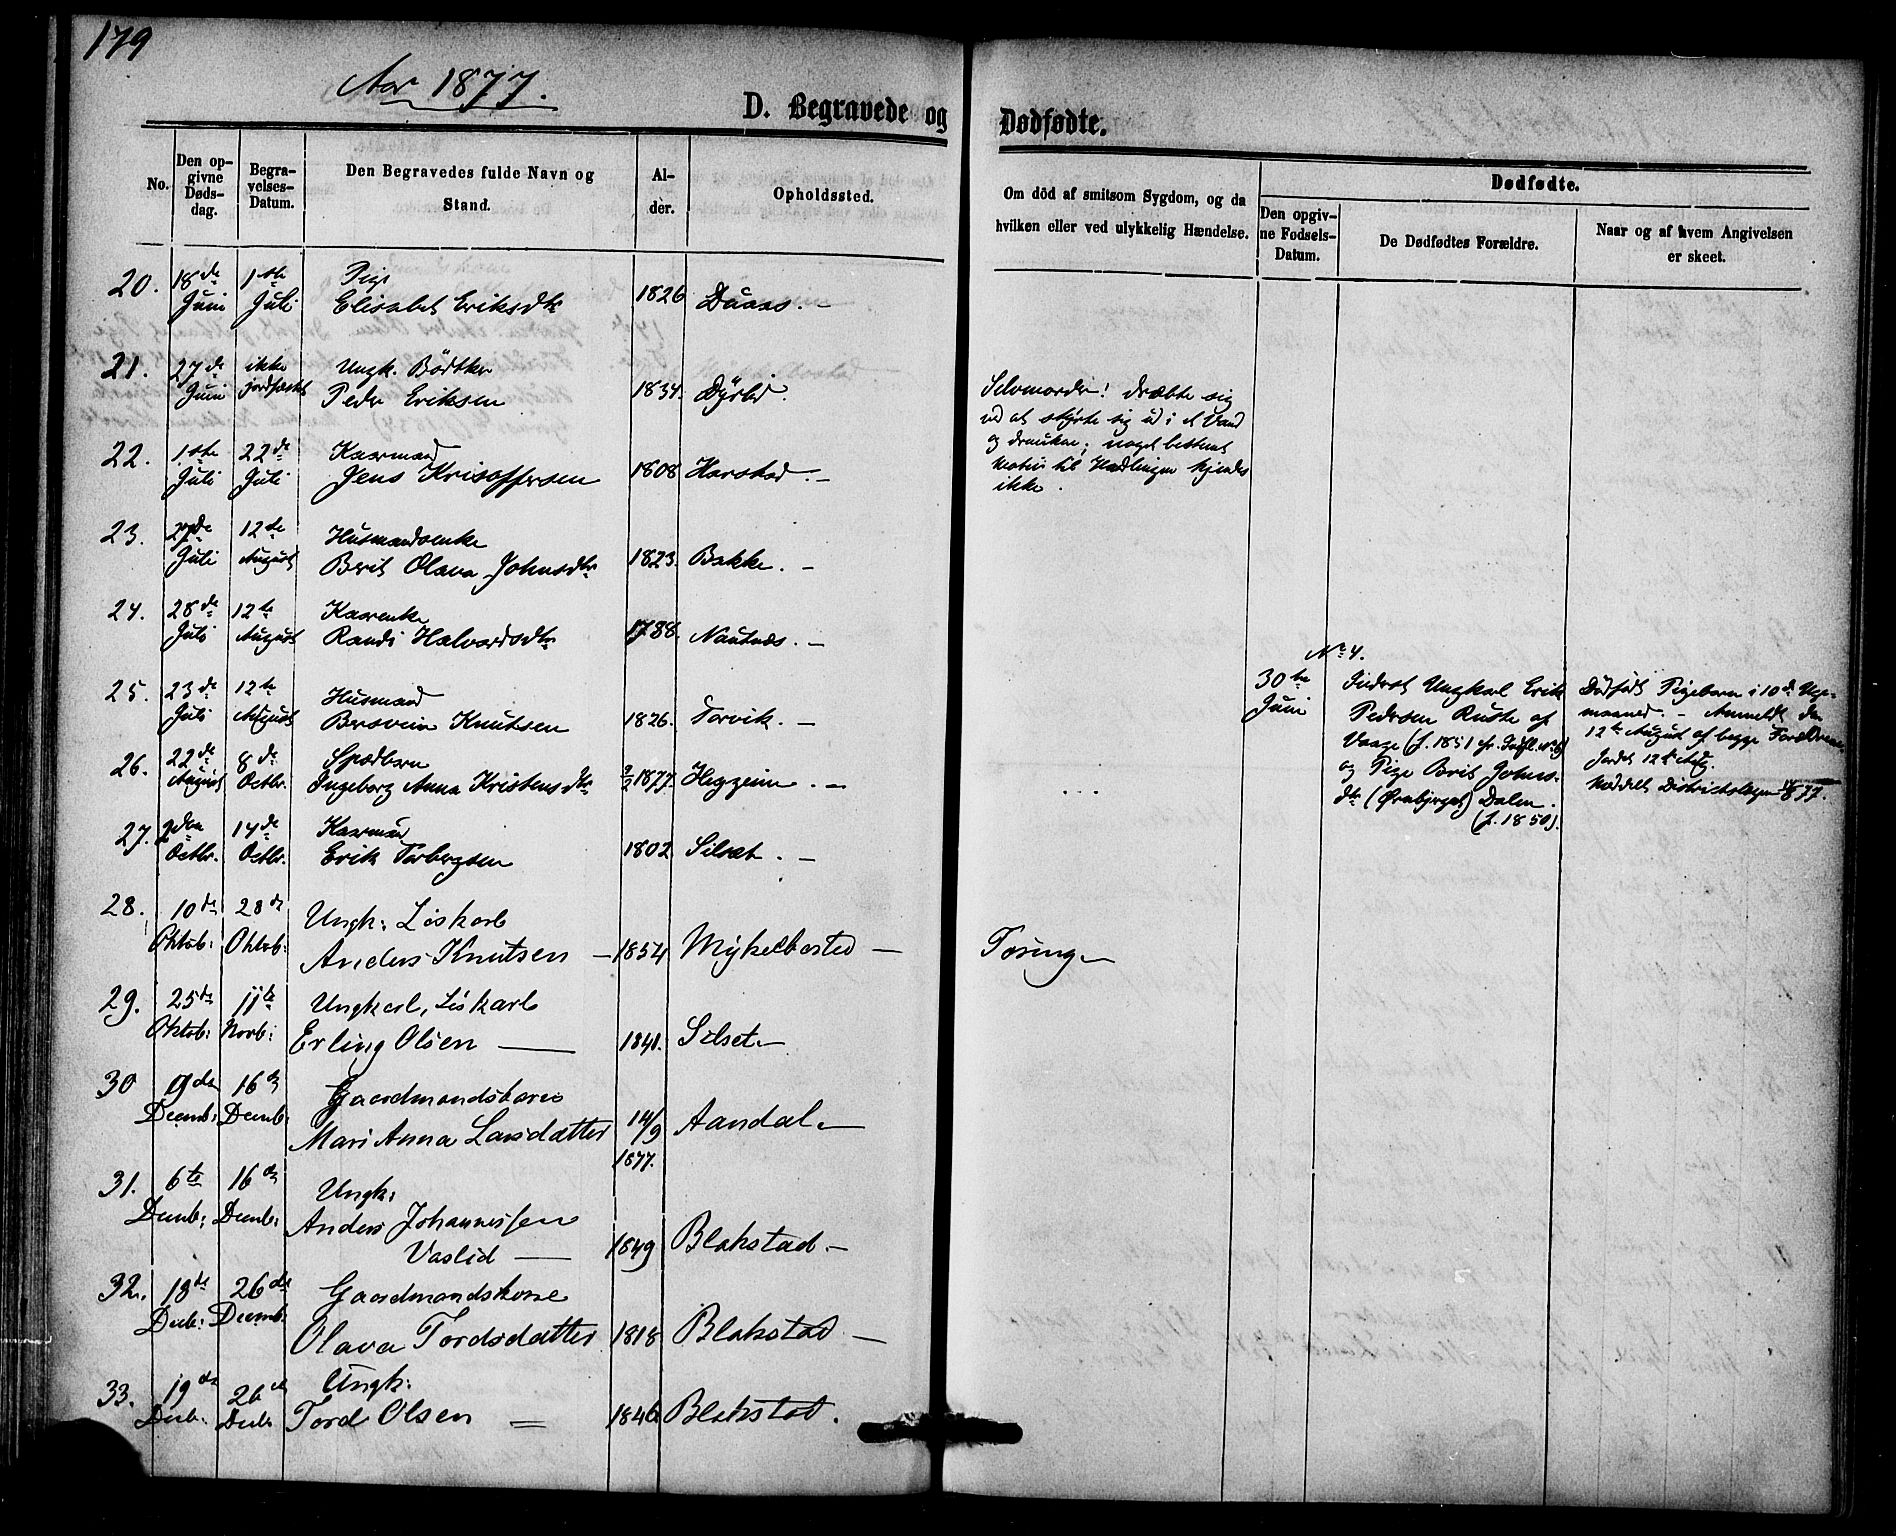 179
Aar 1877.
D. Begravede og Dødfødte.
No.
Den opgivne Dødsdag.
Begravelses-Datum.
Den Begravedes fulde Navn og Stand.
Alder.
Opholdssted.
Om död af smitsom Sygdom, og da hvilken eller ved ulykkelig Hændelse.
Dødfødte.
Den opgivne Fødsels-Datum.
De Dødfødtes Forældre.
Naar og af hvem Angivelsen er skeet.
20. 18de Juni 1ste Juli Pige
Elisabet Eriksdtr 1826 Duaas. -
21. 27de Juni ikke jordfæstet Ungk. Bödtker
Peder Eriksen 1834.
Selvmorder! dræbte sig
ved at styrte sig ud i et Vand
og drukne; noget bestemt
Motiv til Handlingen kjendes
ikke.
22. 1ste Juli 22de Juli Kaarmand
Jens Krisoffersen 1808 Harstad. -
23. 27de Juli 12te August Husmandsenke
Berit Olava Johnsdtr 1823. Bakke. -
24. 28de Juli 12te August Kaarenke
Randi Halvardsdtr 1788. Nautnes. -
25. 23de Juli 12te August Husmand
Bersvein Knutsen 1826. Torvik. -
No 4.
30te Juni
Inderst Ungkarl Erik
Pedersen Ruste af
Vaage (f. 1851
og Pige Brit Johns-
dtr (Ørnbjerget) Dalen.
(f. 1850).
Dødfødt Pigebarn i 10de
maaned. - Anmeldt den
12te August af begge Forældrene
Jordet 12te Aug.
Meddelt Districtslægen 1877.
26. 22de August 8de Octbr. Spædbarn
Ingeborg Anna Kristensdtr 2/2 1877. Heggeim. -
27. 2den Octbr. 14de Octbr. Kaarmand
Erik Torbergsen 1802 Silset. -
28. 10de Oktob: 28de Oktob: Ungk: Liskarl
Anders Knutsen - 1854 Mykelbostad - Tæring -
29. 25de Oktob: 11te Novb: Ungkarl, Liskarl
Erling Olsen - 1841. Silset. -
30 9de Decmb: 16de Decmb: Gaardmandsbarn
Mari Anna Larsdatter 14/9 1877. Aandal. -
31. 6te Decmb: 16de Decmb: Ungk:
Anders Johannesen
Vaslid - 1849 Blakstad. -
32. 18de Decb: 26de Decmb: Gaardmandskone
Olava Tordsdatter 1818 Blakstad -
33. 19de Decb: 26de Decb: Ungk:
Tord Olsen = 1846 Blakstad.